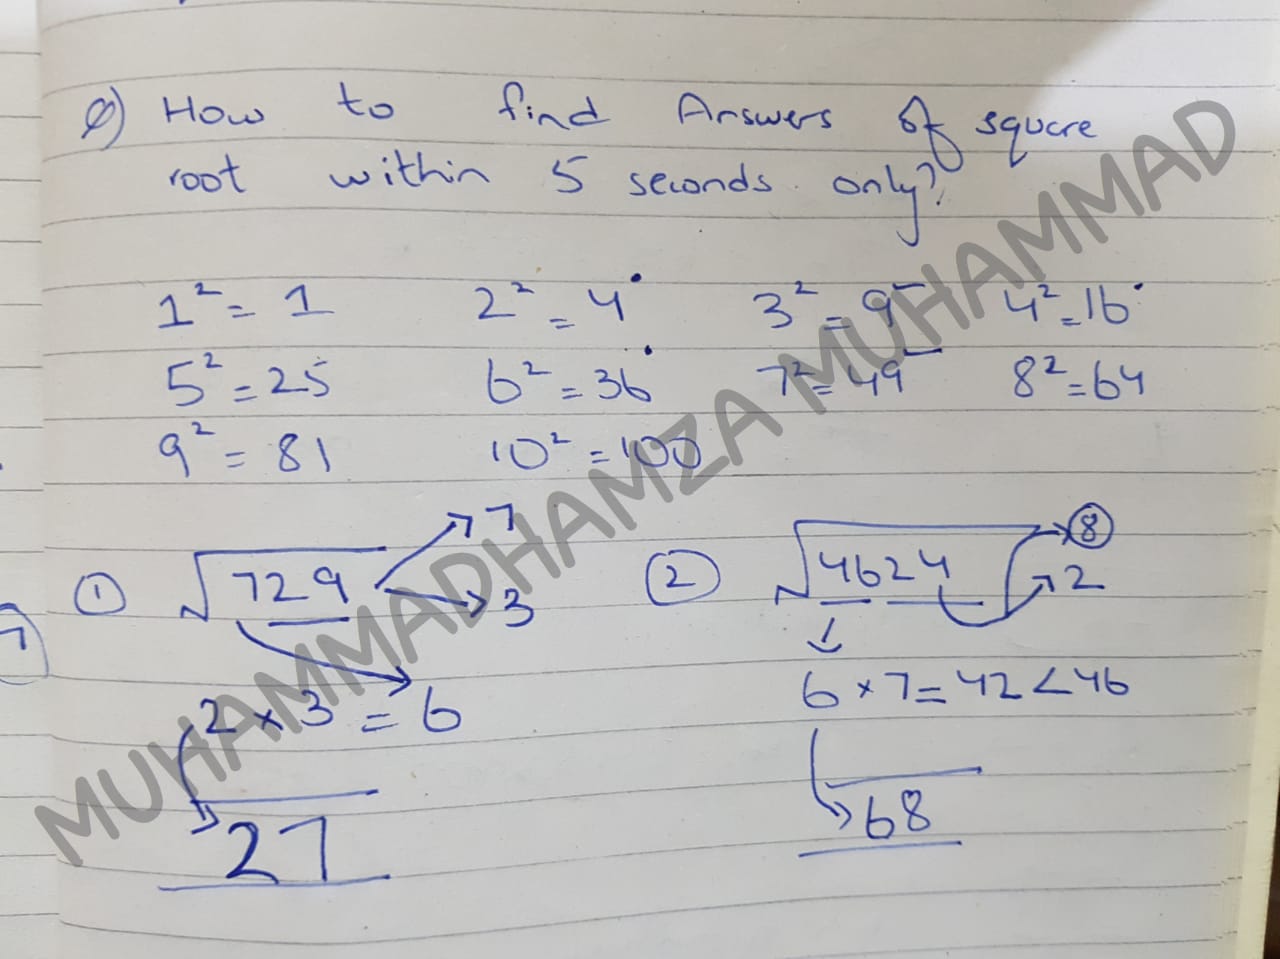 Q) How to find Answers of square
root within 5 seconds only?
1² = 1 2² = 4 3² = 9 4² = 16
5² = 25 6² = 36 7² = 49 8² = 64
9² = 81 10² = 100
① √729 → 7
→ 3
2 × 3 = 6
27
② √4624 → 8
→ 2
6 × 7 = 42 < 46
68
MUHAMMADHAMZA MUHAMMAD